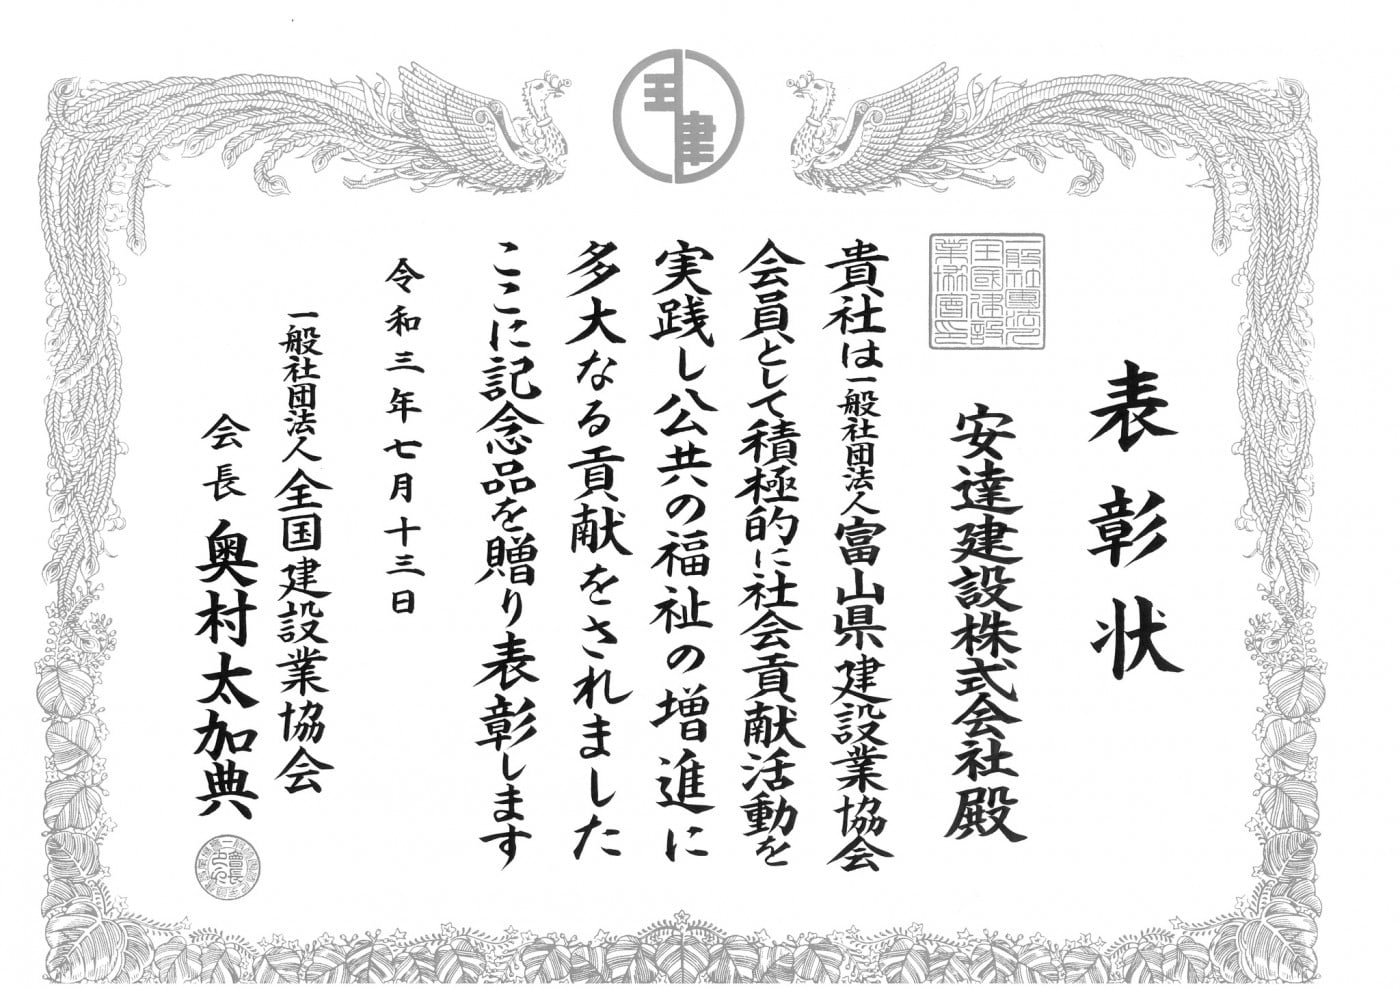 表彰状
安達建設株式会社殿
貴社は一般社団法人富山県建設業協会
会員として積極的に社会貢献活動を
実践し公共の福祉の増進に
多大なる貢献をされました
ここに記念品を贈り表彰します
令和三年七月十三日
一般社団法人全国建設業協会
会長 奥村太加典
一般社団法人
全国建設
業協会之印